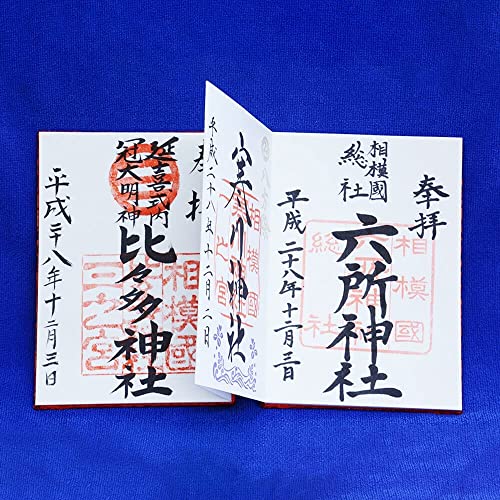 奉拝
相模國
総社
六所神社
平成二十八年十二月三日
相模國
総社
六所神社
寒川神社
相模國
一之宮
平成二十八年十二月二日
奉拝
延喜式内
冠大明神
比々多神社
相模國
三之宮
平成二十八年十二月三日